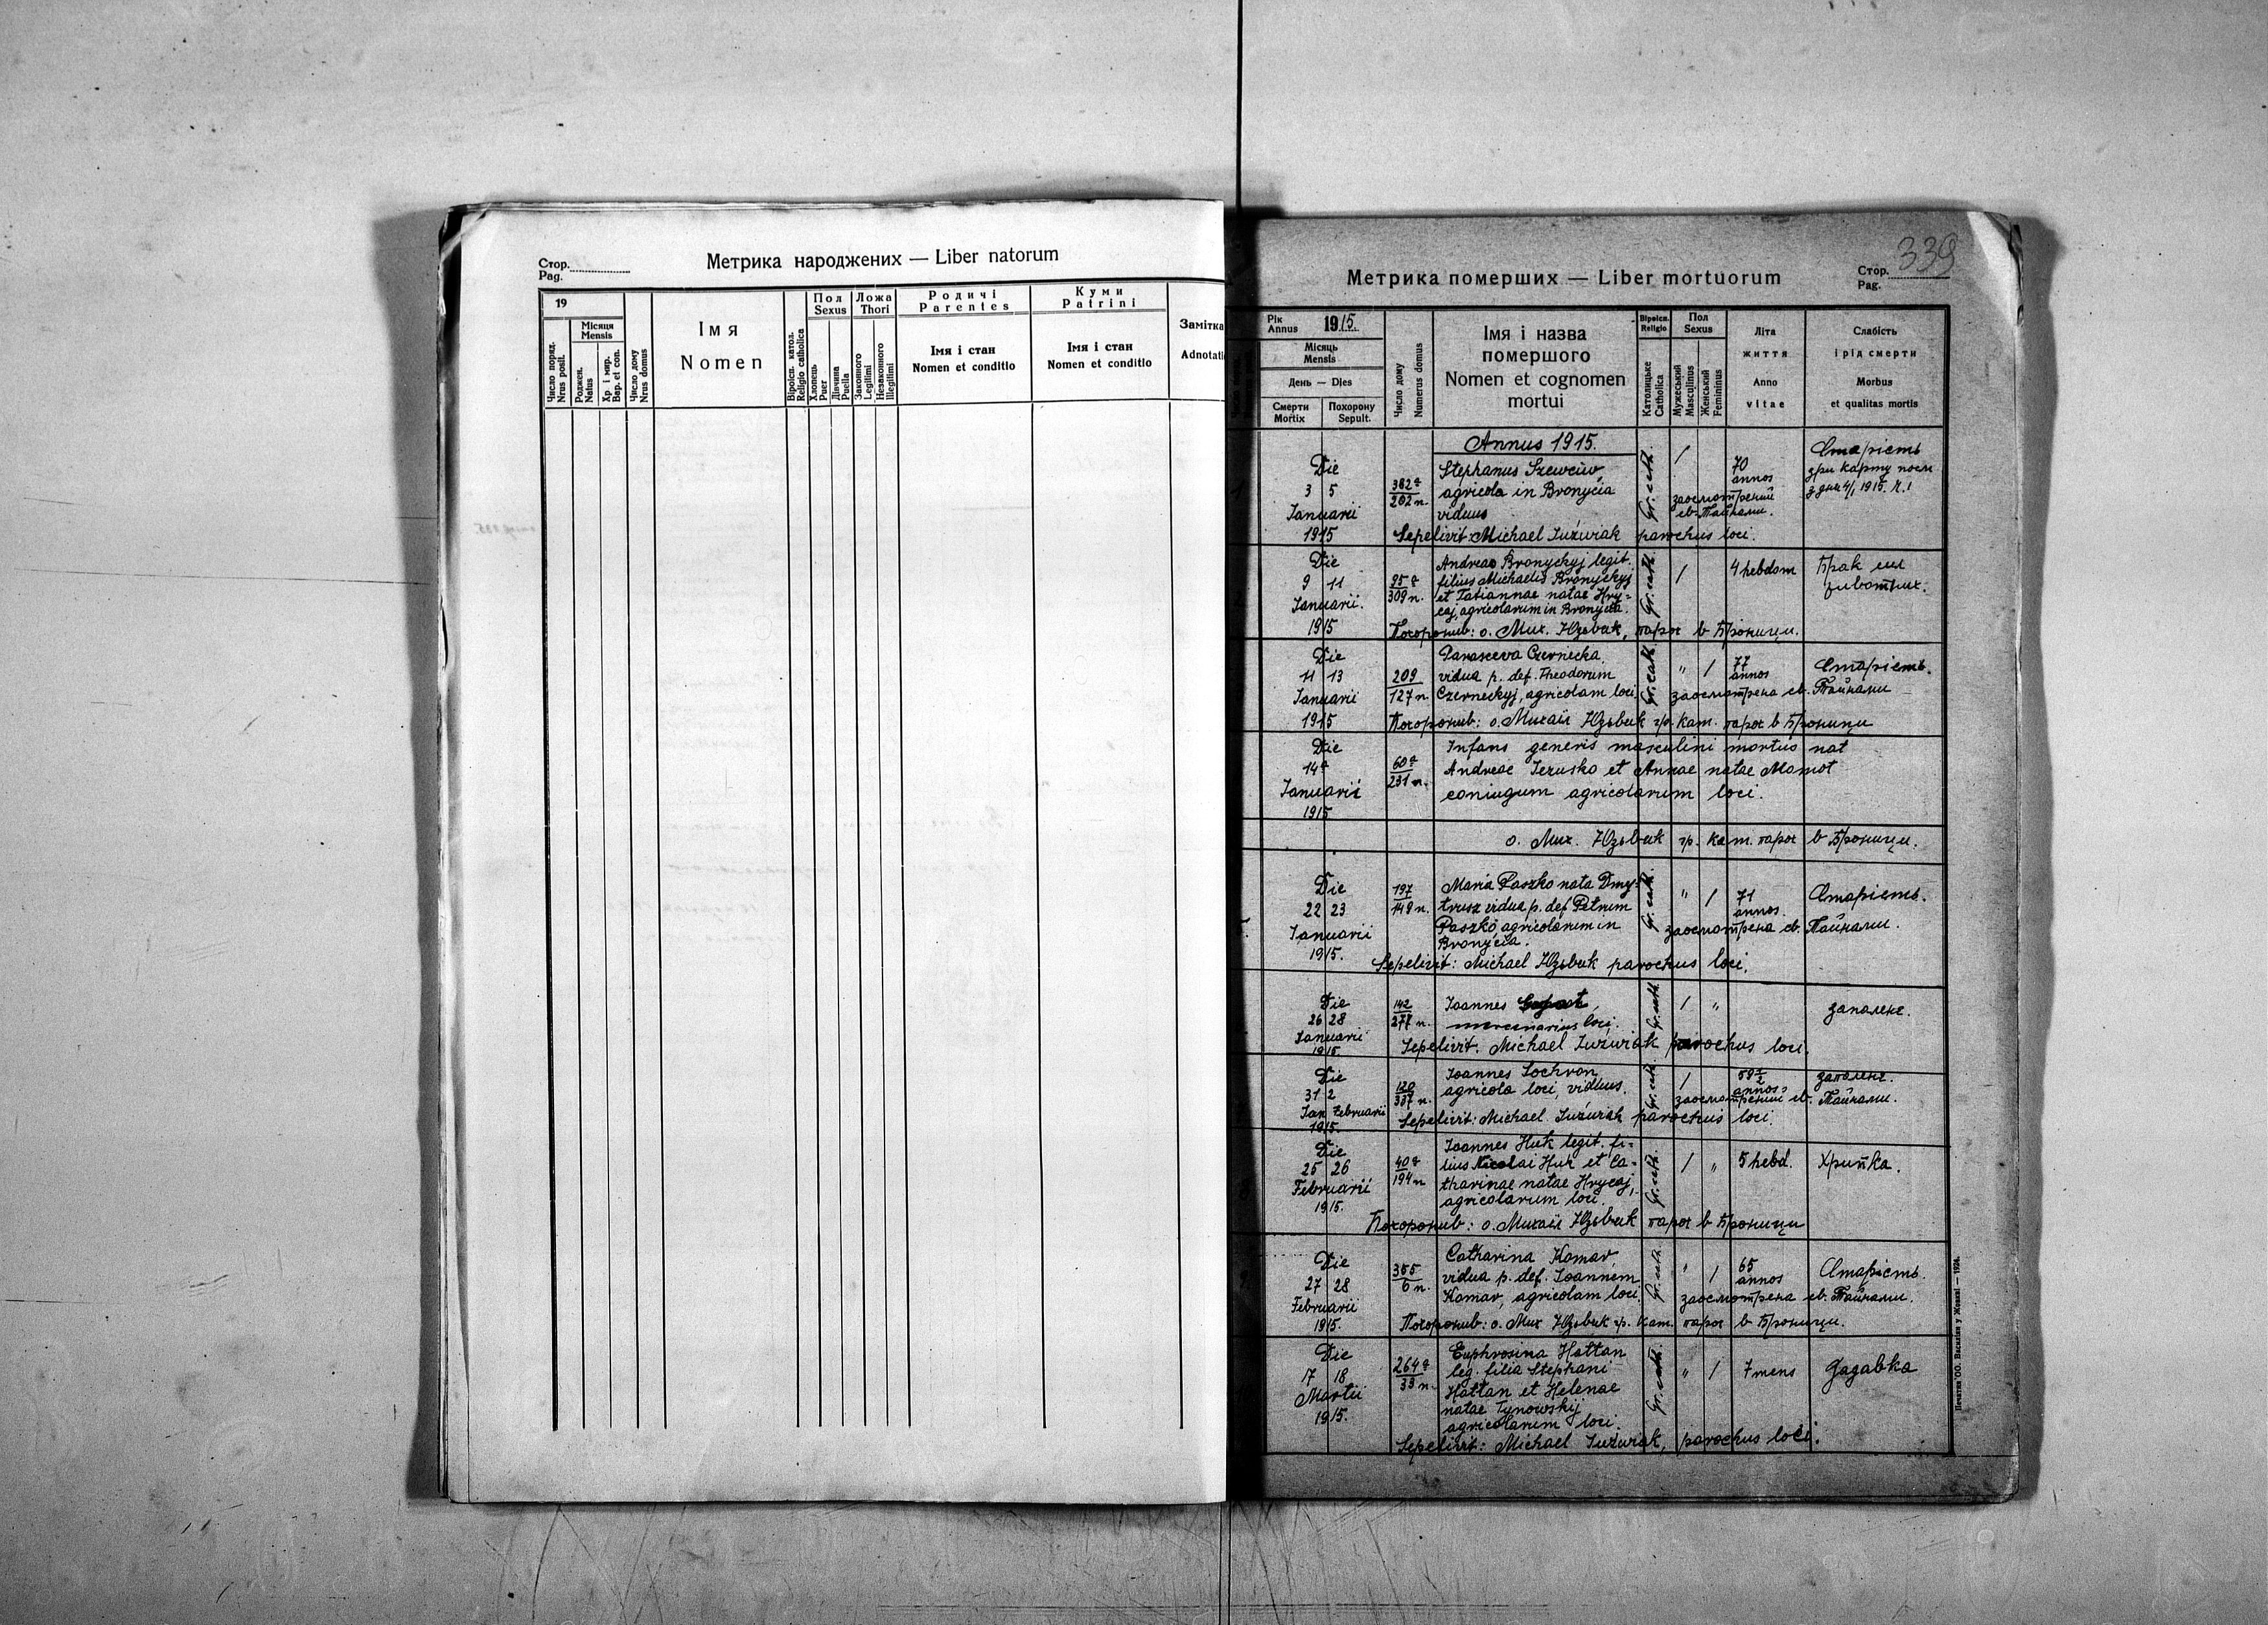 Стор.
Pag.
Метрика народжених — Liber natorum
19
Місяця
Mensis
Число поряд.
Nrus posit.
Роджен.
Natus
Хр і мир.
Bap. et con.
Число дому
Nrus domus
Імя
Nomen
Віроісп. катол.
Religio catholica
Пол
Sexus
Хлопець
Puer
Дівчина
Puella
Ложа
Thori
Законного
Legitimi
Незаконного
Illegitimi
Родичі
Parentes
Імя і стан
Nomen et conditio
Куми
Patrini
Імя і стан
Nomen et conditio
Замітка
Adnotati
339
Метрика померших — Liber mortuorum
Стор.
Pag.
Рік
Annus 1915.
Місяць
Mensis
День — Dies
Смерти
Mortix
Похорону
Sepult.
Число дому
Numerus domus
Імя і назва
помершого
Nomen et cognomen
mortui
Віроісп.
Religio
Католицьке
Catholica
Пол
Sexus
Мужеський
Masculinus
Женський
Femininus
Літа
життя
Anno
vitae
Слабість
і рід смерти
Morbus
et qualitas mortis
Annus 1915.
Die
3 5
Ianuarii
1915
362
202 n.
Stephanus Szewciw,
agricola in Bronycia
viduus
Gr. cath.
/
70
annos
заосмотрений
св. Тайнами.
Старість
зри карту посм
з дня 4/1 1915. Ч. 1
Sepelivit: Michael Iuźwiak parochus loci.
Die
9 11
Ianuarii.
1915
95
309 n.
Andreas Bronyckyj legit.
filius Michaelis Bronyckyj
et Tatiannae natae Hry-
caj, agricolarum in Bronycia.
Gr. cath.
/
4 hebdom
Брак сил
животних.
Похоронив: о. Мих. Юзьвак, парох вБроници.
Die
11 13
Ianuarii
1915
209
127 n
Parasceva Czernecka.
vidua p. def. Theodorum
Czerneckyj, agricolam loci
Gr. cath.
" /
77
annos
заосмотрена св. Тайнами
Старість.
Похоронив: о. Михаіл Юзьвак гр. кат. парох в Броници
Die
14
Ianuarii
1915
60
231 n.
Infans generis masculini mortus nat
Andreae Jezusko et Annae natae Mamot
coniugum agricolarum loci.
о. Мих. Юзьвак гр. кат. парох в Броници.
Die
22 23
Ianuarii
1915.
197
149 n.
Maria Paszko nata Dmy-
trusz vidua p. def. Petrum
Paszko, agricolarum in
Bronycia.
Gr. cath.
" /
71
annos.
заосмотрена св. Тайнами.
Старість.
Sepelivit: Michael Юзьвак parochus loci.
Die
26 28
Ianuarii
1915.
142
277 n.
Ioannes
mercenarius loci.
Gr. cath.
/ "
запалене.
Sepelivit: Michael Iuźwiak parochus loci.
Die
31 2
Ian Februarii
1915.
120
337 n.
Ioannes Sochron
agricola loci, viduus.
Gr. cath.
/
59
annos
заосмотрений св. Тайнами.
запалене.
Sepelivit: Michael Iuźwiak parochus loci.
Die
25 26
Februarii
1915.
40
194 n
Ioannes Huk legit. fi-
lius Nicolai Huk et Ca-
tharinae natae Hrycaj,
agricolarum loci.
Gr. cath.
/ "
5 hebd.
Хрипка.
Похоронив: о. Михаіл Юзьвак парох в Броници
Die
27 28
Februarii
1915.
355
6 n.
Catharina Komar,
vidua p. def. Ioannem
Komar, agricolam loci.
Gr. cath.
" /
65
annos
заосмотрена св. Тайнами.
Старість.
Похоронив: о. Мих Юзьвак гр. кат. парох в Броници.
Die
17 18
Martii
1915.
264
33 n.
Euphrosina Hattan
leg. filia Stephani
Hattan et Helenae
natae Tynowskij
agricolarum loci.
Gr. cath.
" /
7 mens
Дадавка
Sepelivit: Michael Iuźwiak, parochus loci.
Печатня ОО. Василіян у Жовкві — 1924.